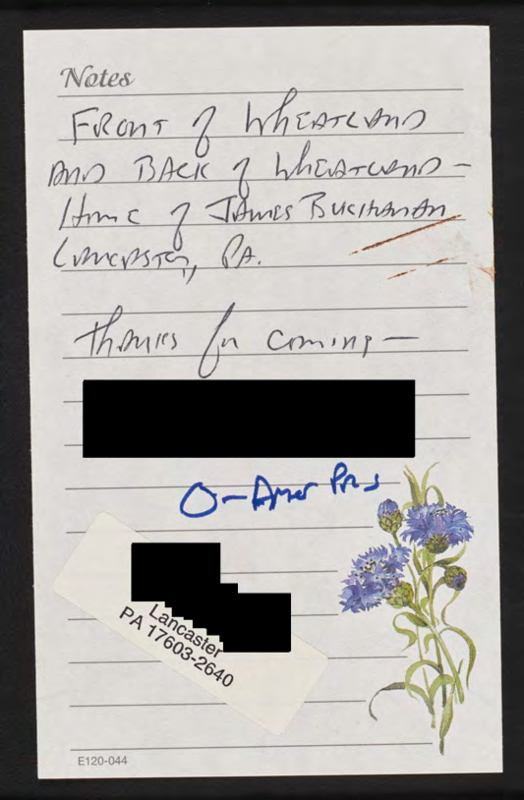 Notes
FRONT of WHEATLAND
AND BACK of WHEATLAND -
Home of JAMES BUCHANAN
LANCASTER, PA.
Thanks for coming -
O-Amer Pres
Lancaster
PA 17603-2640
E120-044